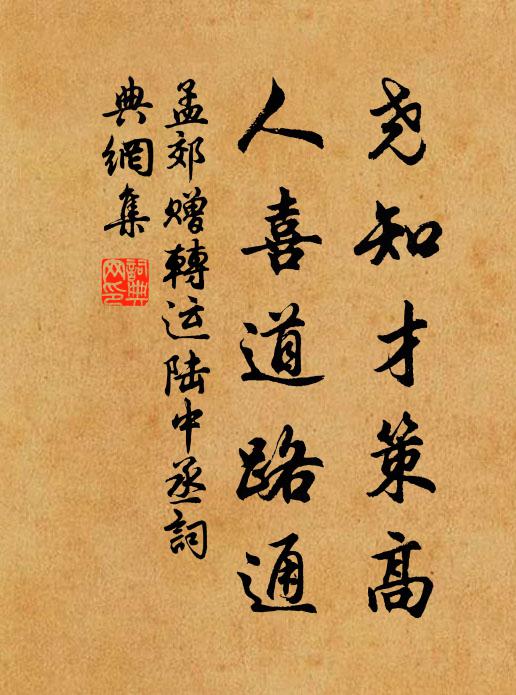 尧知才策高
人喜道路通
孟郊赠轉运陆中丞詞
典網集
詞典网印